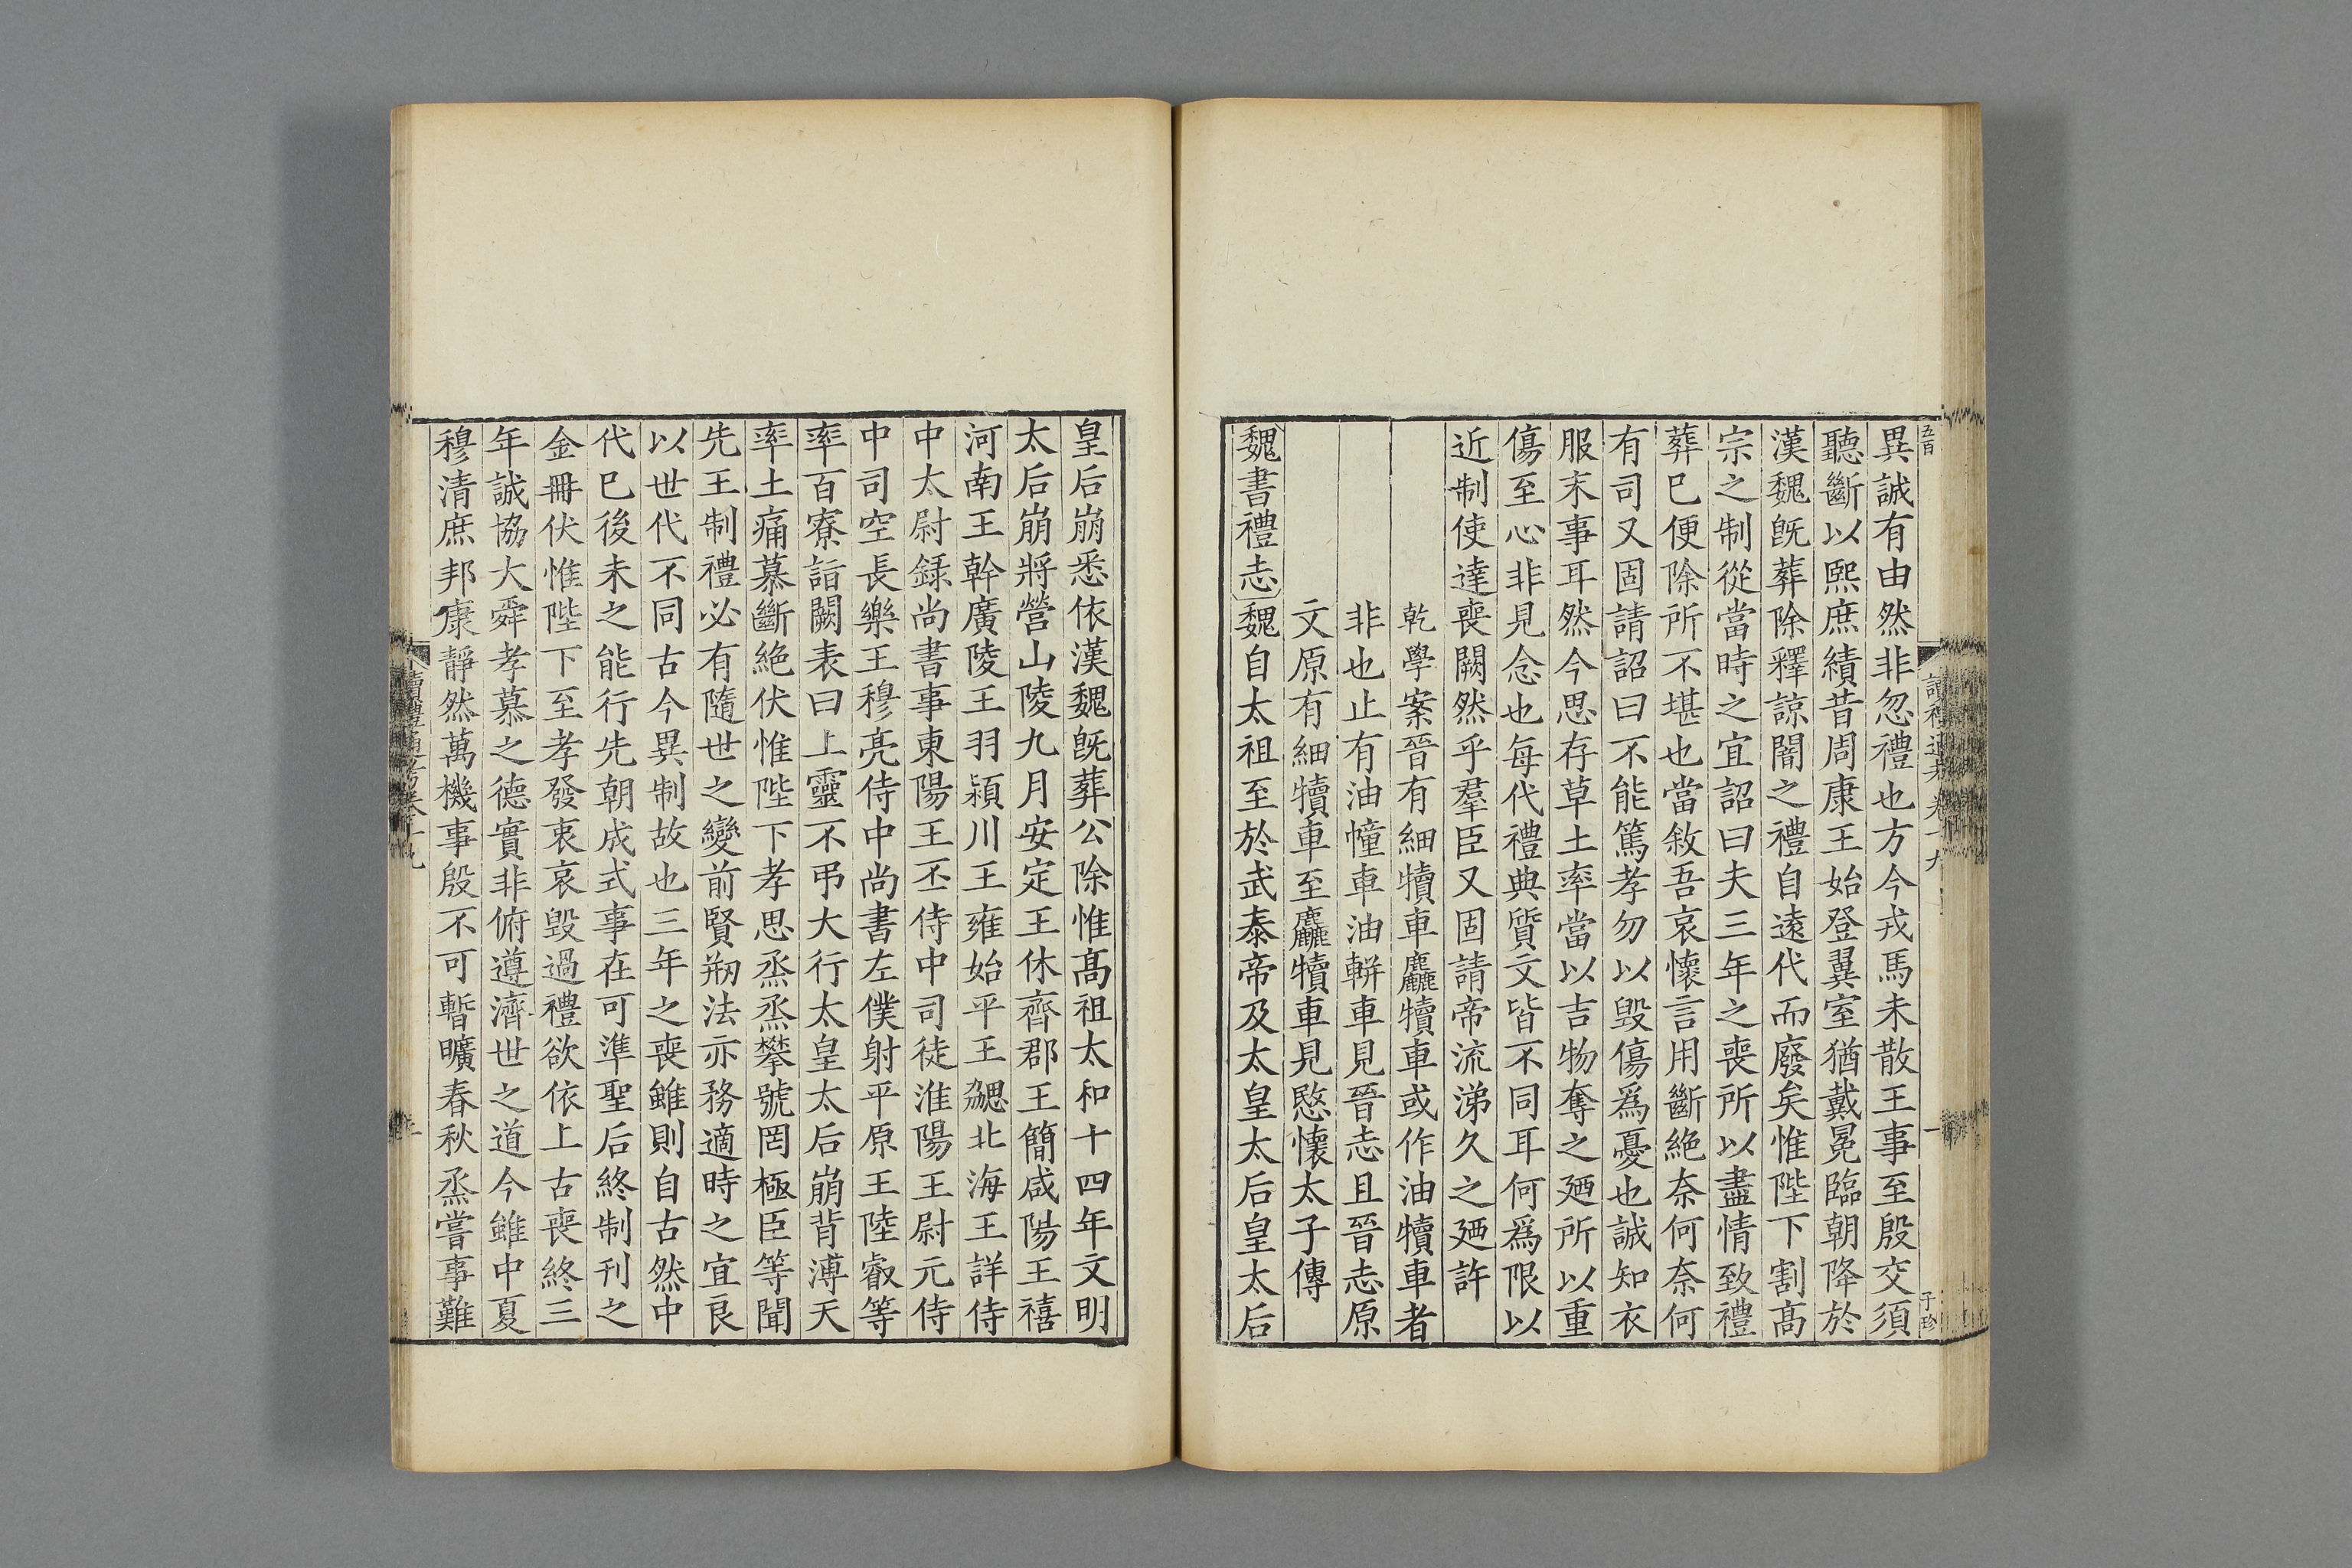 異誠有由然非忽禮也方今戎馬未散王事至殷交須
聽斷以熙庶績昔周康王始登翼室猶戴冕臨朝降於
漢魏旣葬除釋諒闇之禮自遠代而廢矣惟陛下割髙
宗之制從當時之宜詔曰夫三年之喪所以盡情致禮
葬巳便除所不堪也當敘吾哀懷言用斷絶奈何奈何
有司又固請詔曰不能篤孝勿以毀傷爲憂也誠知衣
服末事耳然今思存草土率當以吉物奪之廼所以重
傷至心非見念也每代禮典質文皆不同耳何爲限以
近制使達喪闕然乎羣臣又固請帝流涕久之廼許
乾學案晉有細犢車麤犢車或作油犢車者
非也止有油幢車油軿車見晉志且晉志原
文原有細犢車至麤犢車見愍懷太子傳
魏書禮志魏自太祖至於武泰帝及太皇太后皇太后
皇后崩悉依漢魏旣葬公除惟髙祖太和十四年文明
太后崩將營山陵九月安定王休齊郡王簡咸陽王禧
河南王幹廣陵王羽潁川王雍始平王勰北海王詳侍
中太尉録尚書事東陽王丕侍中司徒淮陽王尉元侍
中司空長樂王穆亮侍中尚書左僕射平原王陸叡等
率百寮詣闕表曰上靈不弔大行太皇太后崩背溥天
率土痛慕斷絶伏惟陛下孝思烝烝攀號罔極臣等聞
先王制禮必有隨世之變前賢剏法亦務適時之宜良
以世代不同古今異制故也三年之喪雖則自古然中
代巳後未之能行先朝成式事在可準聖后終制刊之
金冊伏惟陛下至孝發衷哀毀過禮欲依上古喪終三
年誠協大舜孝慕之德實非俯遵濟世之道今雖中夏
穆清庶邦康靜然萬機事殷不可暫曠春秋烝嘗事難